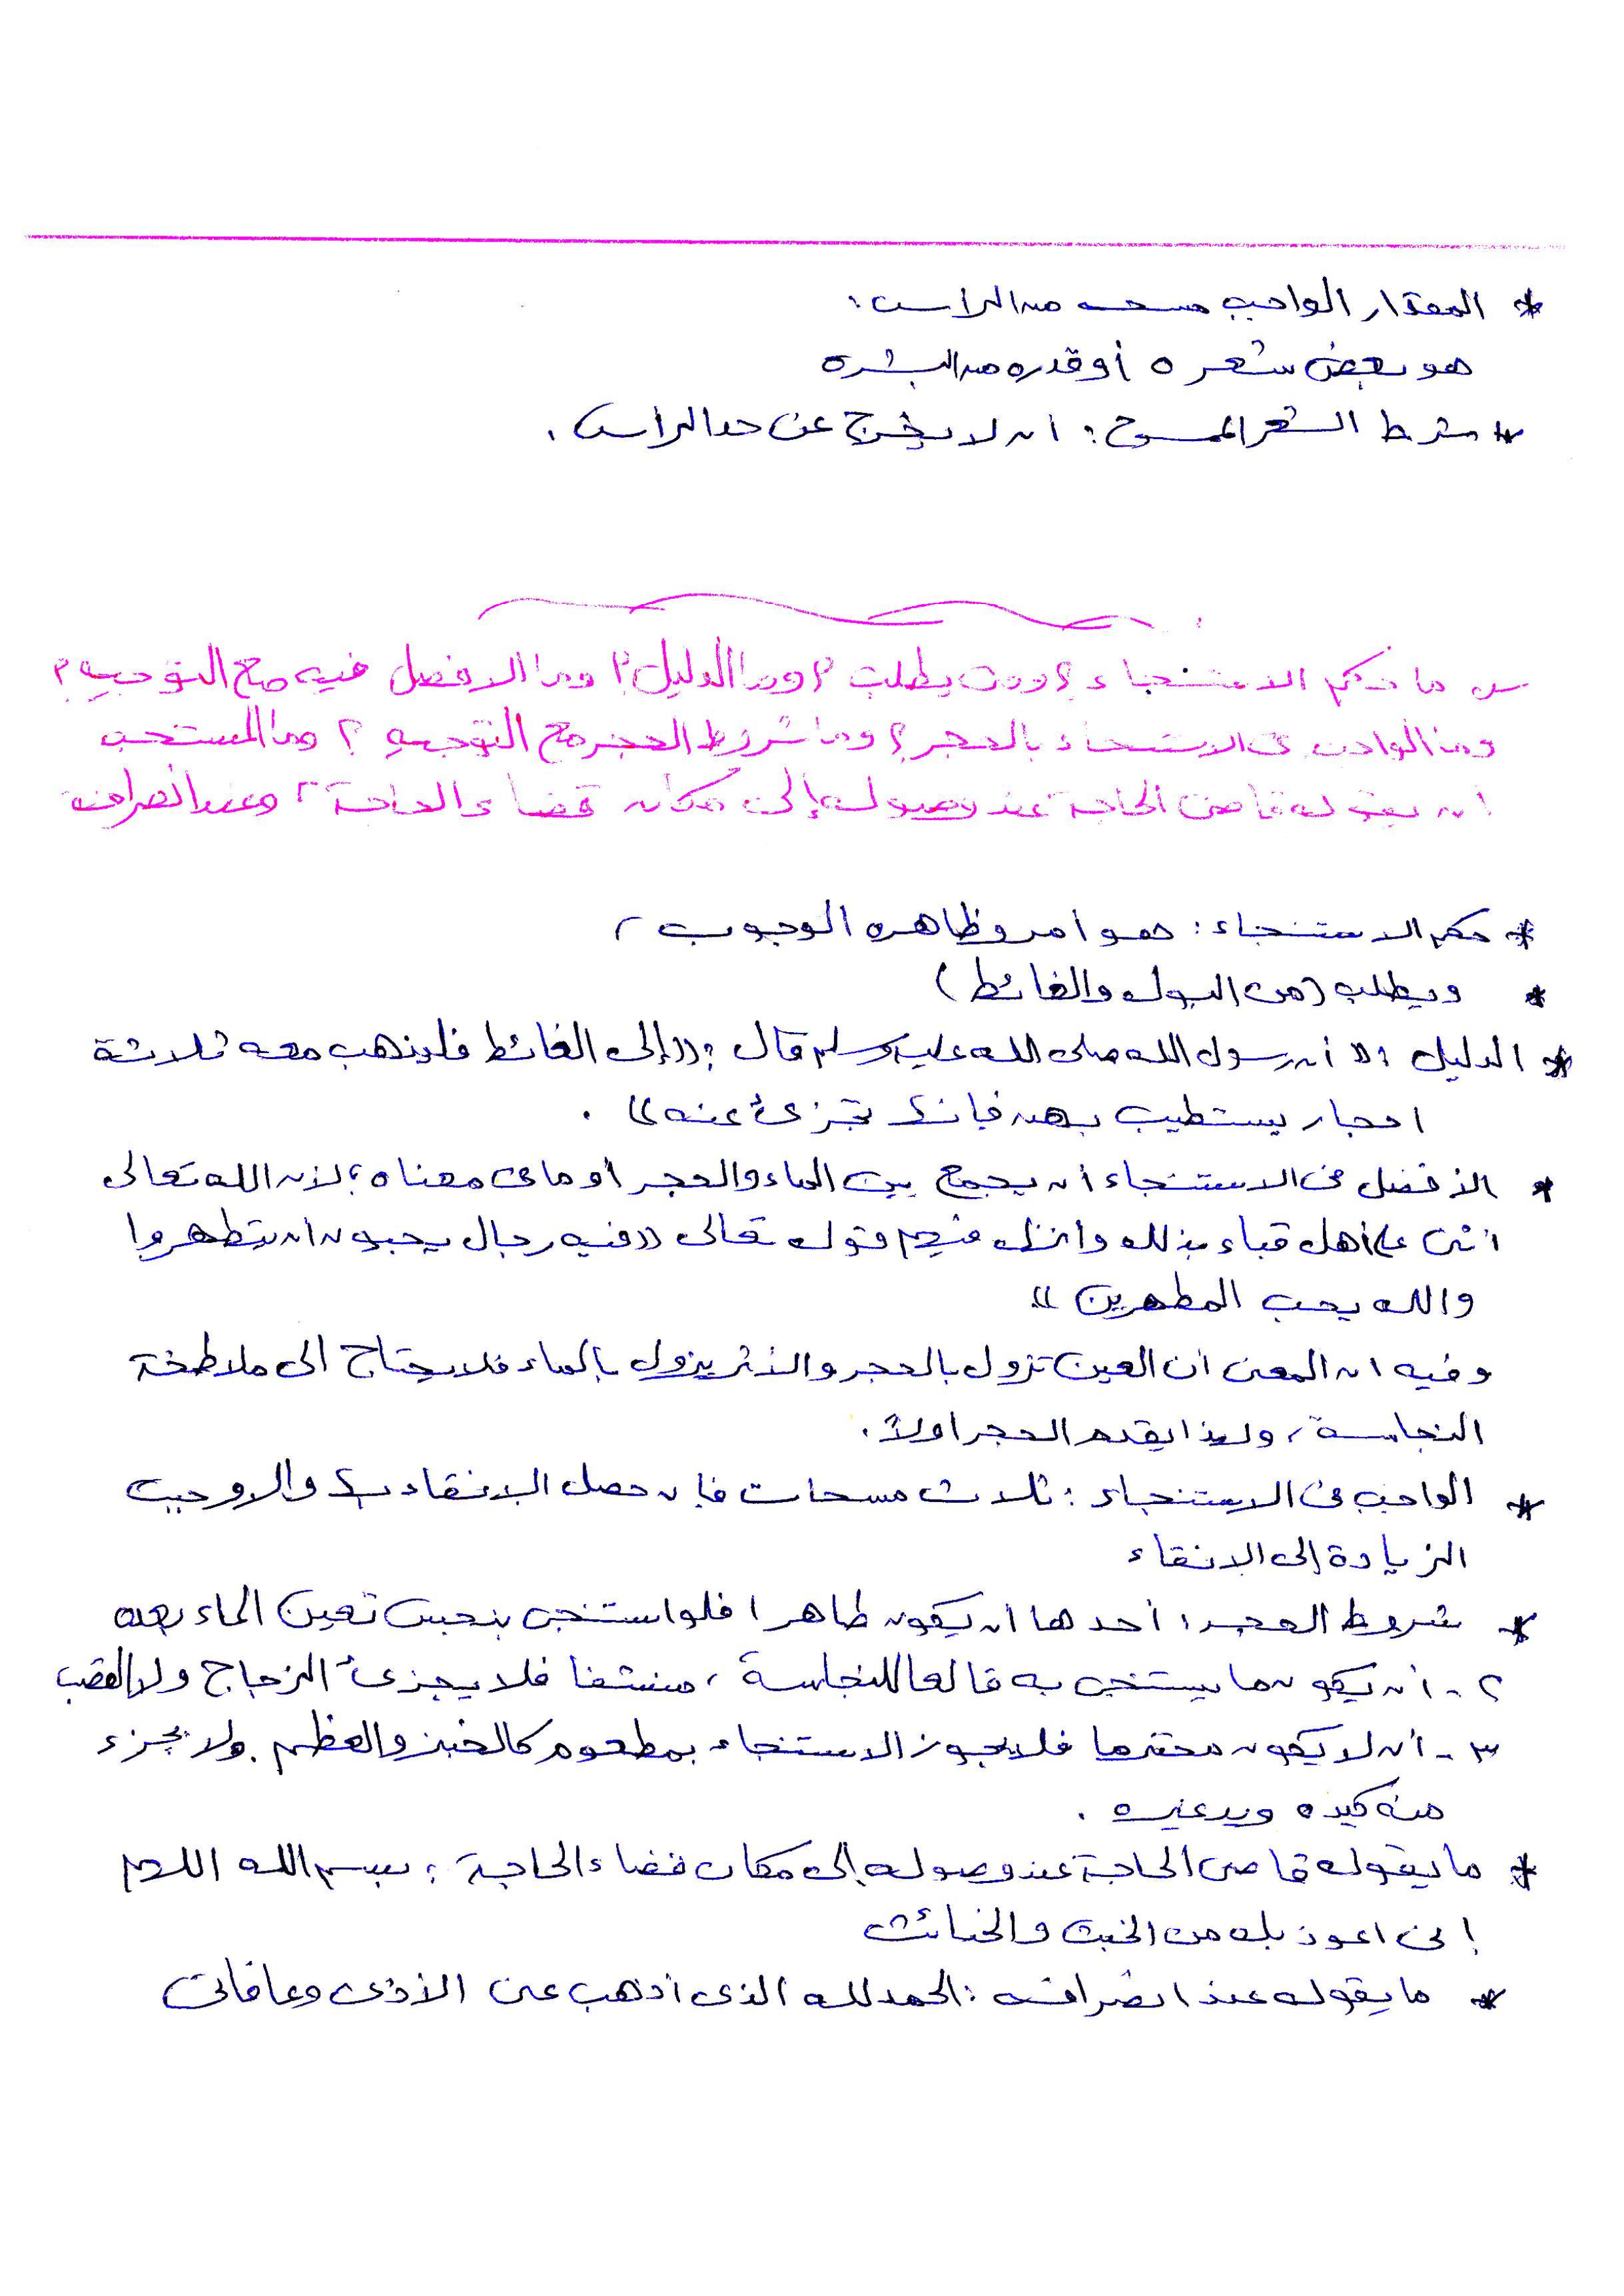 * المقدار الواجب مسحه من الرأس:
هو بعض شعره أو قدره من البشره
* شرط الشعر الممسوح: ان لا يخرج عن حد الرأس.
س ما حكم الاستنجاء؟ ومن يطلب؟ وما الدليل؟ وما الافضل فيه مع التوجيه؟
وما الواجب فى الاستنجاء بالحجر؟ وما شروط الحجر مع التوجيه؟ وما المستحب
ان يقوله قاضى الحاجة عند وصوله إلى مكان قضاء الحاجة؟ وعند انصرافه
* حكم الاستنجاء: هو أمر وظاهره الوجوب،
* ويطلب (من البول والغائط)
* الدليل: «أن رسول الله صلى الله عليه وسلم قال: «إلى الغائط فليذهب معه ثلاثة
احجار يستطيب بهن فإنها تجزئ عنه».
* الأفضل فى الاستنجاء أن يجمع بين الماء والحجر أو مافى معناه؛ لأن الله تعالى
اثنى على أهل قباء بذلك وانزل فيهم قوله تعالى «فيه رجال يحبون ان يتطهروا
والله يحب المطهرين»
وفيه ان المعنى أن العين تزول بالحجر والأثر يزول بالماء فلا يحتاج الى ملاطخة
النجاسة، ولهذا يقدم الحجر اولاً.
* الواجب فى الاستنجاء: ثلاث مسحات فإن حصل الإنقاء بها والا وجب
الزيادة إلى الإنقاء
* شروط الحجر: أحدها أن يكون طاهرا فلو استنجى بنجس تعين الماء بعده
٢ - أن يكون ما يستنجى به قالعا للنجاسة، منشفا فلا يجزئ الزجاج ولا القصب
٣ - أن لا يكون محترما فلا يجوز الاستنجاء بمطعوم كالخبز والعظم. ولا بجزء
منه كيده ويد غيره.
* ما يقوله قاضى الحاجة عند وصوله إلى مكان قضاء الحاجة: بسم الله اللهم
إنى اعوذ بك من الخبث والخبائث
* ما يقوله عند انصرافه: الحمد لله الذى أذهب عنى الأذى وعافانى